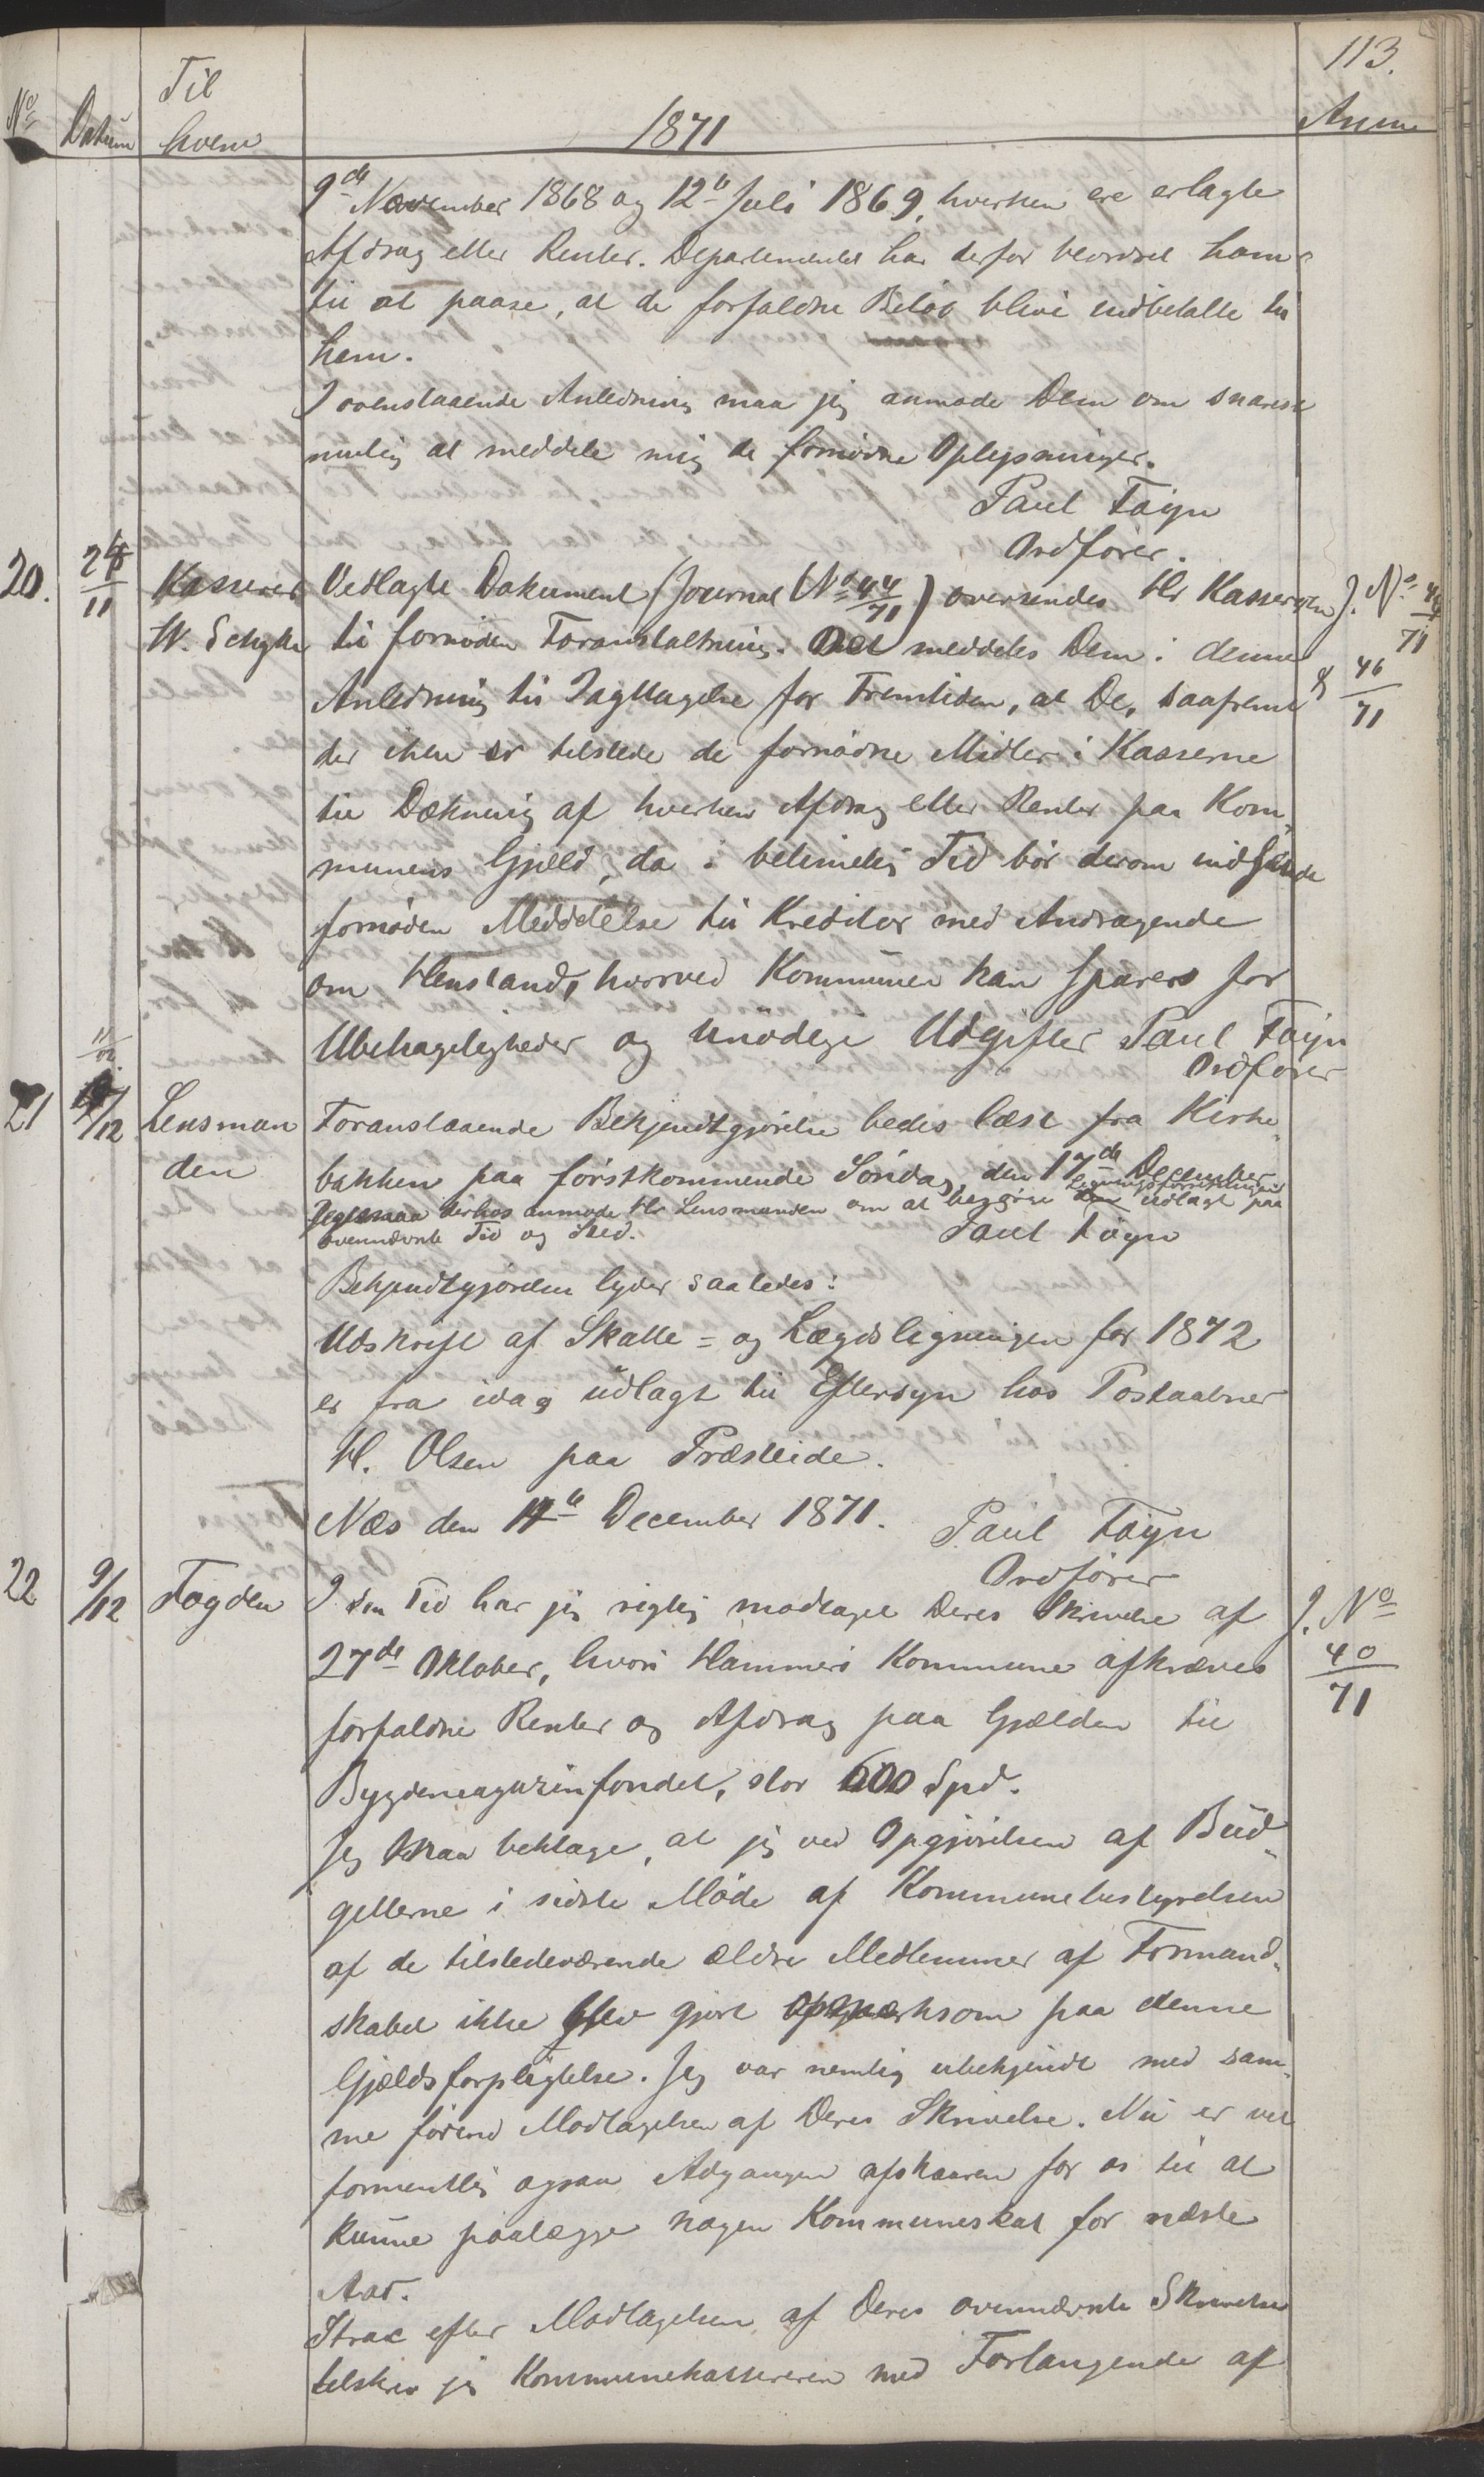 113.
No Datum Til hvem 1871 Anm
9de November 1868 og 12te Juli 1869, hverken ere erlagte
Afdrag eller Renter. Departementet har derfor beordret ham
til at paase, at de forfaldne Beløb blive indbetalte til
ham.
I ovenstaaende Anledning maa jeg anmode Dem om snarest
mulig at meddele mig de fornødne Oplysninger.
Paul Tøyn
Ordfører.
20. 24/11 Kasserer Vedlagte Dokument (Journal No 44/71) oversendes Hr Kassereren J. No 44/71
W. Schytte til fornøden Foranstaltning. Det meddeles Dem i denne
Anledning til Iagttagelse for Fremtiden, at De, saafremt & 46/71
der ikke er tilstede de fornødne Midler i Kasserne
til Dækning af hverken Afdrag eller Renter paa Kom-
munens Gjeld, da i betimelig Tid bør derom indsende
fornøden Meddelelse til Kreditor med Andragende
om Henstand, hvorved Kommunen kan spares for
Ubehageligheder og unødige Udgifter Paul Tøyn
Ordfører
21 /12 Lensman Foranstaaende Bekjendtgjørelse bedes læst fra Kirke-
den bakken paa førstkommende Søndag den 17de December
Jeg maa derhos anmode Hr Lensmanden om at besørge Ligningsforretningen udlagt paa
ovennævnte Tid og Sted. Paul Tøyn
Bekjendtgjørelsen lyder saaledes:
Udskrift af Skatte- og Lægdsligningen for 1872
er fra idag udlagt til Eftersyn hos Postaabner
H. Olsen paa Præsteide.
Næs den December 1871. Paul Tøyn
Ordfører
22 9/12 Fogden I sin Tid har jeg rigtig modtaget Deres Skrivelse af J. No
27de Oktober, hvori Hammerø Kommune afkræves 40/71
forfaldne Renter og Afdrag paa Gjælden til
Bygdemagazinfondet, stor 600 Spd.
Jeg maa beklage, at jeg ved Opgjørelsen af Bud-
getterne i sidste Møde af Kommunebestyrelsen
af de tilstedeværende ældre Medlemmer af Formand-
skabet ikke blev gjort opmærksom paa denne
Gjældsforpligtelse. Jeg var nemlig ubekjendt med sam-
me førend Modtagelsen af Deres Skrivelse. Nu er vel
formentlig ogsaa Adgangen afskaaren for os til at
kunne paalægge nogen Kommuneskat for næste
Aar.
Strax efter Modtagelsen af Deres ovennævnte Skrivelse
tilskrev jeg Kommunekassereren med Forlangende af